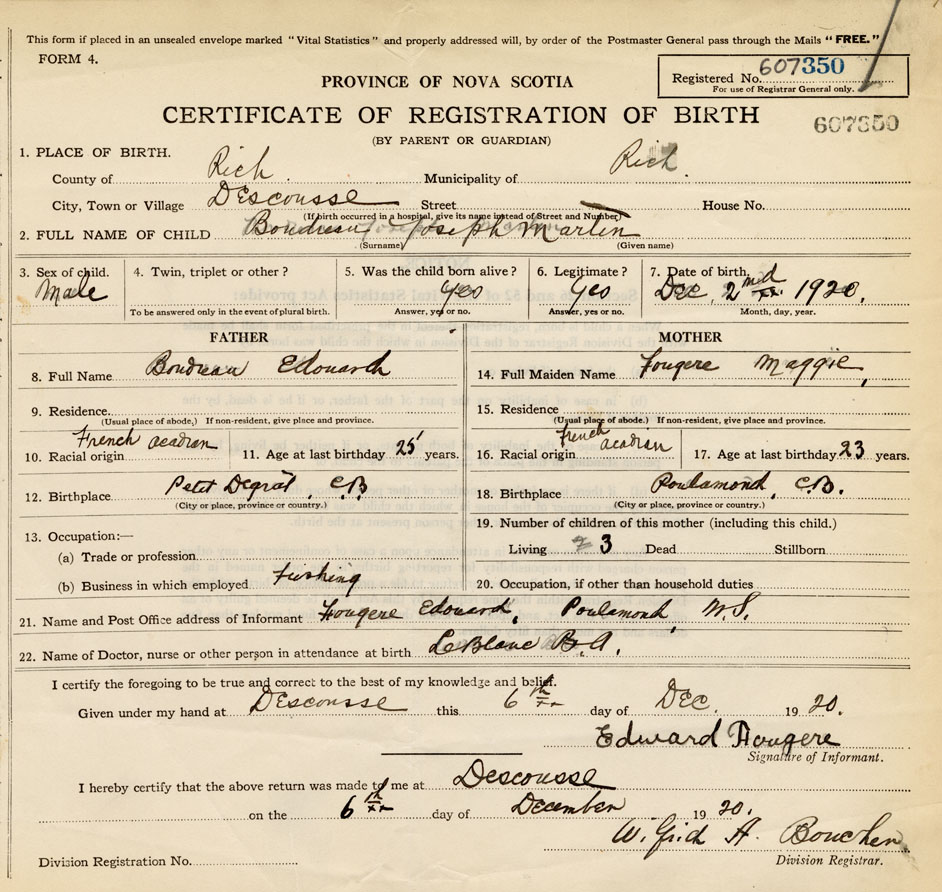 This form if placed in an unsealed envelope marked "Vital Statistics" and properly addressed will, by order of the Postmaster General pass through the Mails "FREE."
FORM 4.
Registered No. 607350
For use of Registrar General only.
PROVINCE OF NOVA SCOTIA
CERTIFICATE OF REGISTRATION OF BIRTH
607350
(BY PARENT OR GUARDIAN)
1. PLACE OF BIRTH.
County of Rich. Municipality of Rich
City, Town or Village Descousse Street House No.
(If birth occurred in a hospital, give its name instead of Street and Number)
2. FULL NAME OF CHILD Boudreau Joseph Martin
(Surname) (Given name)
3. Sex of child. 4. Twin, triplet or other? 5. Was the child born alive? 6. Legitimate? 7. Date of birth.
Male Yes Yes Dec. 2nd 1920.
To be answered only in the event of plural birth. Answer, yes or no. Answer, yes or no. Month, day, year.
FATHER MOTHER
8. Full Name Boudreau Edouard 14. Full Maiden Name Fougere Maggie,
9. Residence. 15. Residence
(Usual place of abode.) If non-resident, give place and province. (Usual place of abode.) If non-resident, give place and province.
10. Racial origin French acadian 11. Age at last birthday 25 years. 16. Racial origin French acadian 17. Age at last birthday 23 years.
12. Birthplace Petit Degrat, C.B 18. Birthplace Poulamond, C.B.
(City or place, province or country.) (City or place, province or country.)
13. Occupation:— 19. Number of children of this mother (including this child.)
(a) Trade or profession Living 3 Dead Stillborn
(b) Business in which employed Fishing 20. Occupation, if other than household duties
21. Name and Post Office address of Informant Fougere Edouard, Poulamond, N.S.
22. Name of Doctor, nurse or other person in attendance at birth LeBlanc B.A.
I certify the foregoing to be true and correct to the best of my knowledge and belief.
Given under my hand at Descousse this 6th day of Dec. 1920.
Edward Fougere
Signature of Informant.
I hereby certify that the above return was made to me at Descousse
on the 6th day of December 1920.
W. A. Boucher
Division Registration No. Division Registrar.